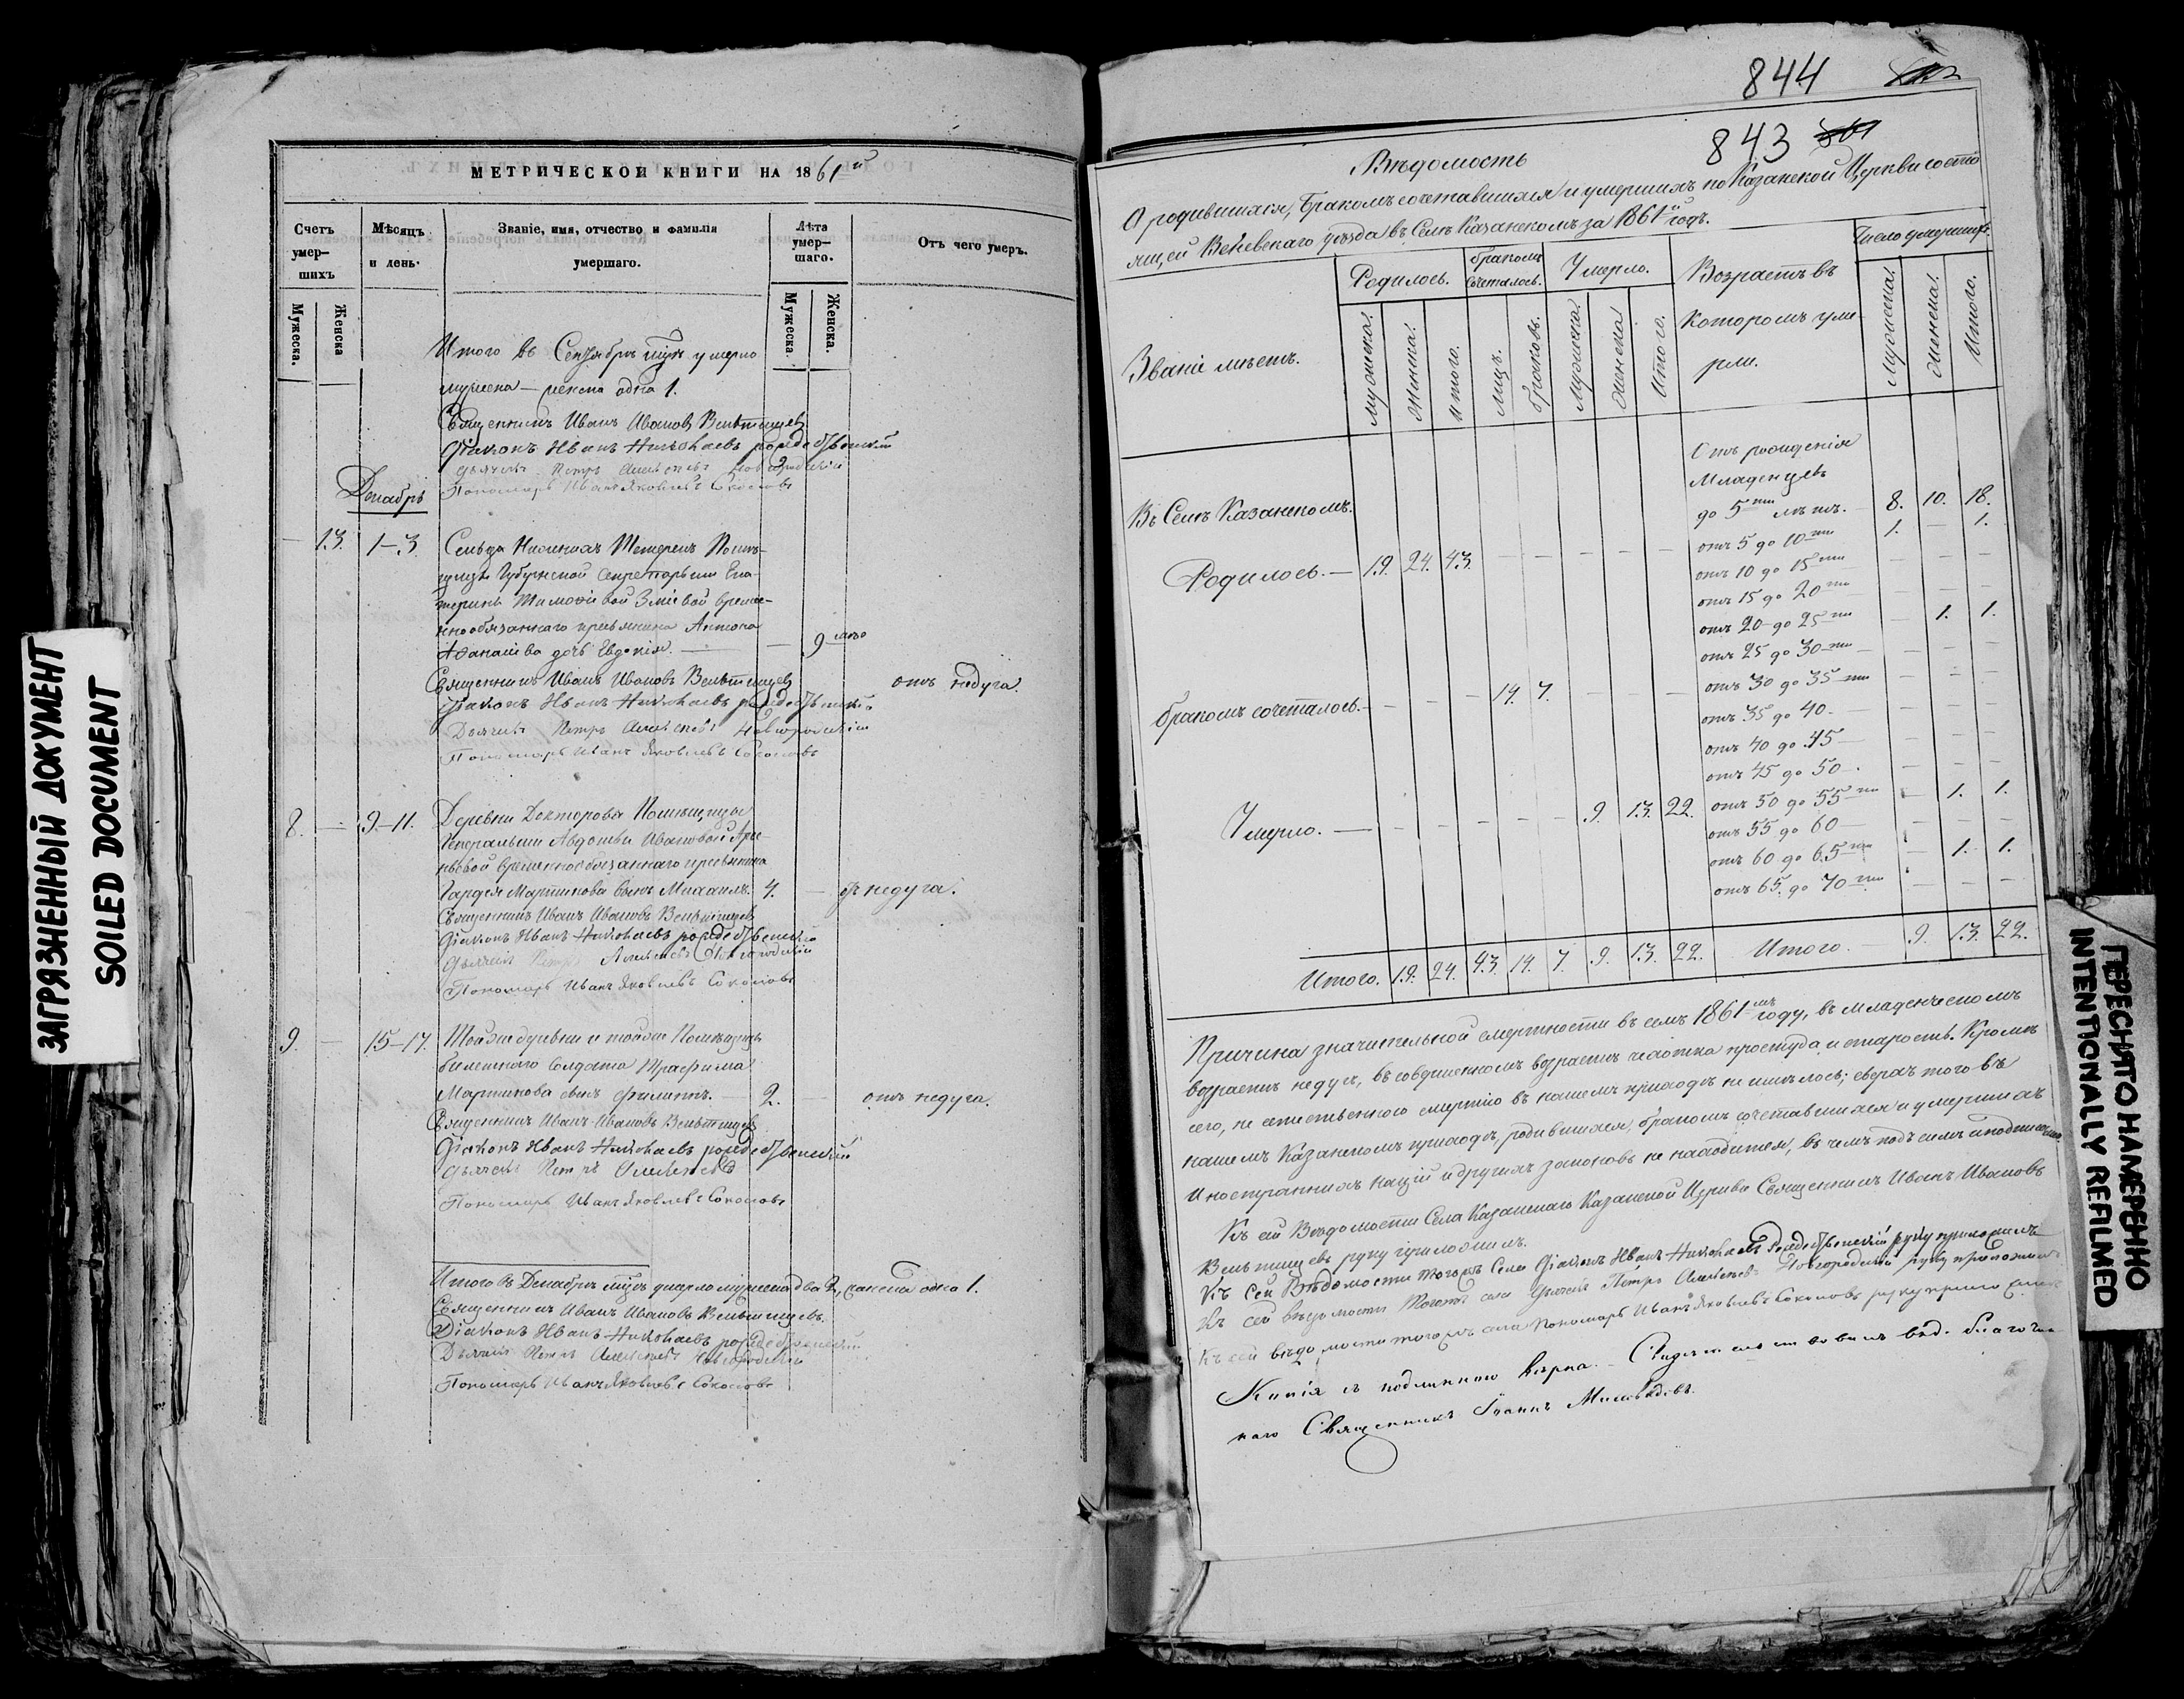 ЗАГРЯЗНЕННЫЙ ДОКУМЕНТ
SOILED DOCUMENT
МЕТРИЧЕСКОЙ КНИГИ НА 1861й
Счетъ умер-шихъ
Мѣсяцъ и день.
Званіе, имя, отчество и фамилія умершаго.
Лѣта умер-шаго.
Отъ чего умеръ.
Мужеска.
Женска
Мужеска.
Женска.
Итого въ Сентябрѣ мцѣ умерло
мужеска — женска одна 1.
Священникъ Иванъ Ивановъ
Діаконъ Иванъ Николаевъ рождественскій
Дьячекъ Петръ Алексѣевъ Новгородскій
Пономарь Иванъ Яковлевъ Соколовъ
Декабрь
— 13. 1—3. Сельца
щицы Губернской Секретарши Ека-
терины Тимоѳѣевой Зміевой времен-
нообязаннаго крестьянина Антона
Аѳанасьева дочь Евдокія. — — 9
отъ недуга.
Священникъ Иванъ Ивановъ
Діаконъ Иванъ Николаевъ рождественскій
Дьячекъ Петръ Алексѣевъ Новгородскій
Пономарь Иванъ Яковлевъ Соколовъ
8. — 9—11. Деревни Докторова Помѣщицы
Генеральши Авдотьи Ивановой Арсе-
ньевой временнообязаннаго крестьянина
Гордея Мартинова сынъ Михаилъ. 4. — отъ недуга.
Священникъ Иванъ Ивановъ
Діаконъ Иванъ Николаевъ рождественскій
Дьячекъ Петръ Алексѣевъ Новгородскій
Пономарь Иванъ Яковлевъ Соколовъ
9. — 15—17. Тойже деревни и тойже Помѣщицы
билетнаго Солдата Трафима
Мартинова сынъ Филиппъ. — 2. — отъ недуга.
Священникъ Иванъ Ивановъ
Діаконъ Иванъ Николаевъ рождественскій
Дьячекъ Петръ Алексѣевъ
Пономарь Иванъ Яковлевъ Соколовъ
Итого въ Декабрѣ мцѣ умерло мужеска два 2, женска одна 1.
Священникъ Иванъ Ивановъ
Діаконъ Иванъ Николаевъ рождественскій
Дьячекъ Петръ Алексѣевъ Новгородскій
Пономарь Иванъ Яковлевъ Соколовъ
844
843
Вѣдомость
О родившихся, бракомъ сочетавшихся и умершихъ по Казанской Церкви состо-
ящей Веневскаго уѣзда въ Селѣ Казанскомъ за 1861й годъ.
Званіе мѣстъ.
Родилось.
бракомъ сочеталось.
Умерло.
Возрастъ въ которомъ умерли.
Число умершихъ.
Мужеска.
Женска.
Итого.
Лицъ.
браковъ.
Мужеска
Женска
Итого.
Мужеска.
Женска.
Итого.
Въ Селѣ Казанскомъ.
Отъ рожденія
Младенцевъ
до 5ти лѣтъ. 8. 10. 18.
отъ 5 до 10ти 1. — 1.
Родилось. — 19. 24. 43. — — — — —
отъ 10 до 15ти — — —
отъ 15 до 20ти — — —
отъ 20 до 25ти — 1. 1.
отъ 25 до 30ти — — —
бракомъ сочеталось. — — — 14. 7. — — —
отъ 30 до 35ти — — —
отъ 35 до 40. — — —
отъ 40 до 45 — — —
отъ 45 до 50 — — —
Умерло. — — — — — — 9. 13. 22.
отъ 50 до 55ти — 1. 1.
отъ 55 до 60 — — —
отъ 60 до 65ти — 1. 1.
отъ 65 до 70ти — — —
Итого. 19. 24. 43. 14. 7. 9. 13. 22. Итого. 9. 13. 22.
Причина значительной смертности въ семъ 1861мъ году, въ младенческомъ
возрастѣ недугъ, въ совершенномъ возрастѣ чахотка простуда и старость. Кромѣ
сего, не естественною смертію въ нашемъ приходѣ не имѣлось; сверхъ того въ
нашемъ Казанскомъ приходѣ, родившихся, бракомъ сочетавшихся и умершихъ
Иностранныхъ націй и другихъ законовъ не находится, въ чемъ подъ симъ и подписуемся.
Къ сей Вѣдомости Села Казанскаго Казанской Церкви Священникъ Иванъ Ивановъ
руку приложилъ.
Къ сей Вѣдомости тогожъ Села Діаконъ Иванъ Николаевъ Рождественскій руку приложилъ
Къ сей вѣдомости тогожъ села Дьячекъ Петръ Алексѣевъ Новгородскій руку приложилъ
Къ сей вѣдомости тогожъ села Пономарь Иванъ Яковлевъ Соколовъ руку приложилъ
Копія съ подлинною вѣрна. Свидѣтельствовалъ вѣд. благочин-
наго Священникъ Іоаннъ
ПЕРЕСНЯТО НАМЕРЕННО
INTENTIONALLY REFILMED